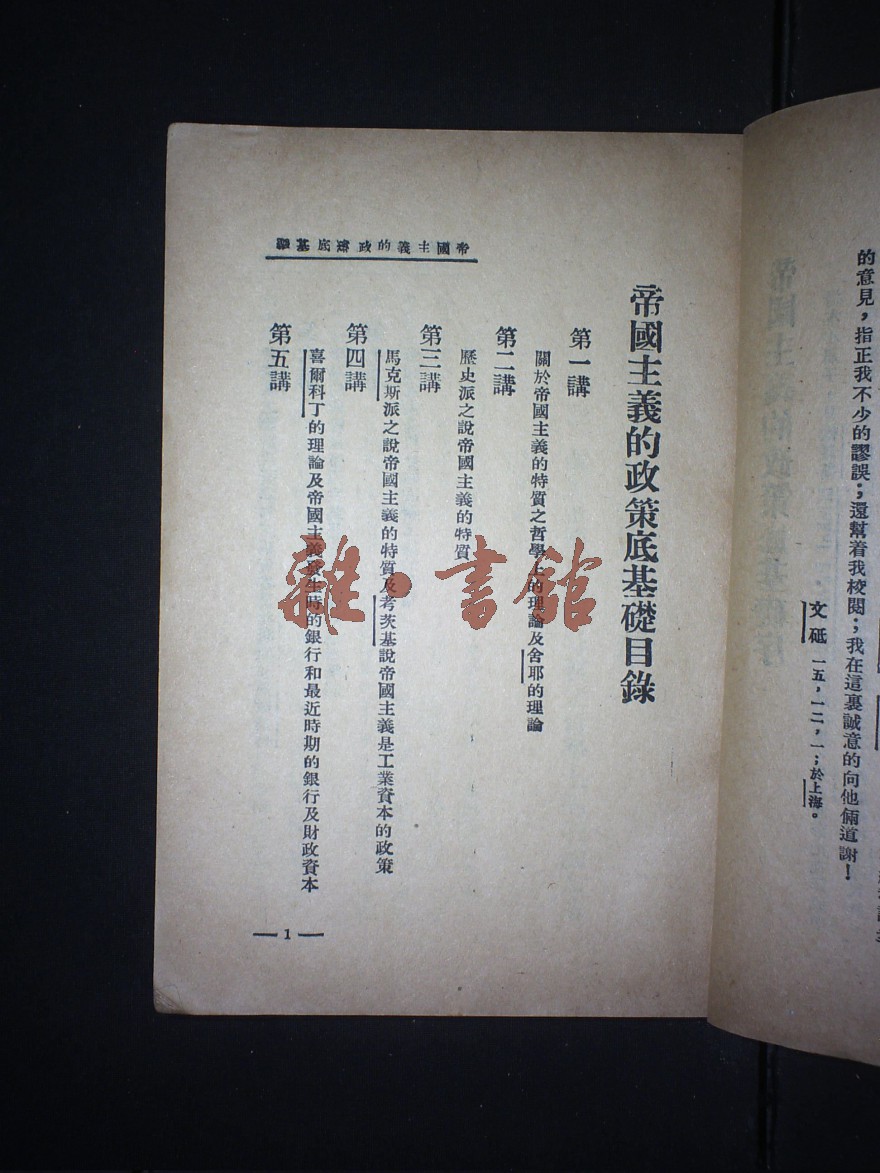 的意見，指正我不少的謬誤；還幫着我校閱；我在這裏誠意的向他倆道謝！
文砥 一五，一二，一；於上海。
帝國主義的政策底基礎目錄
第一講
關於帝國主義的特質之哲學上的理論及舍耶的理論
第二講
歷史派之說帝國主義的特質
第三講
馬克斯派之說帝國主義的特質及考茨基說帝國主義是工業資本的政策
第四講
喜爾科丁的理論及帝國主義發生時的銀行和最近時期的銀行及財政資本
第五講
帝國主義的政策底基礎
— 1 —
雜·書館